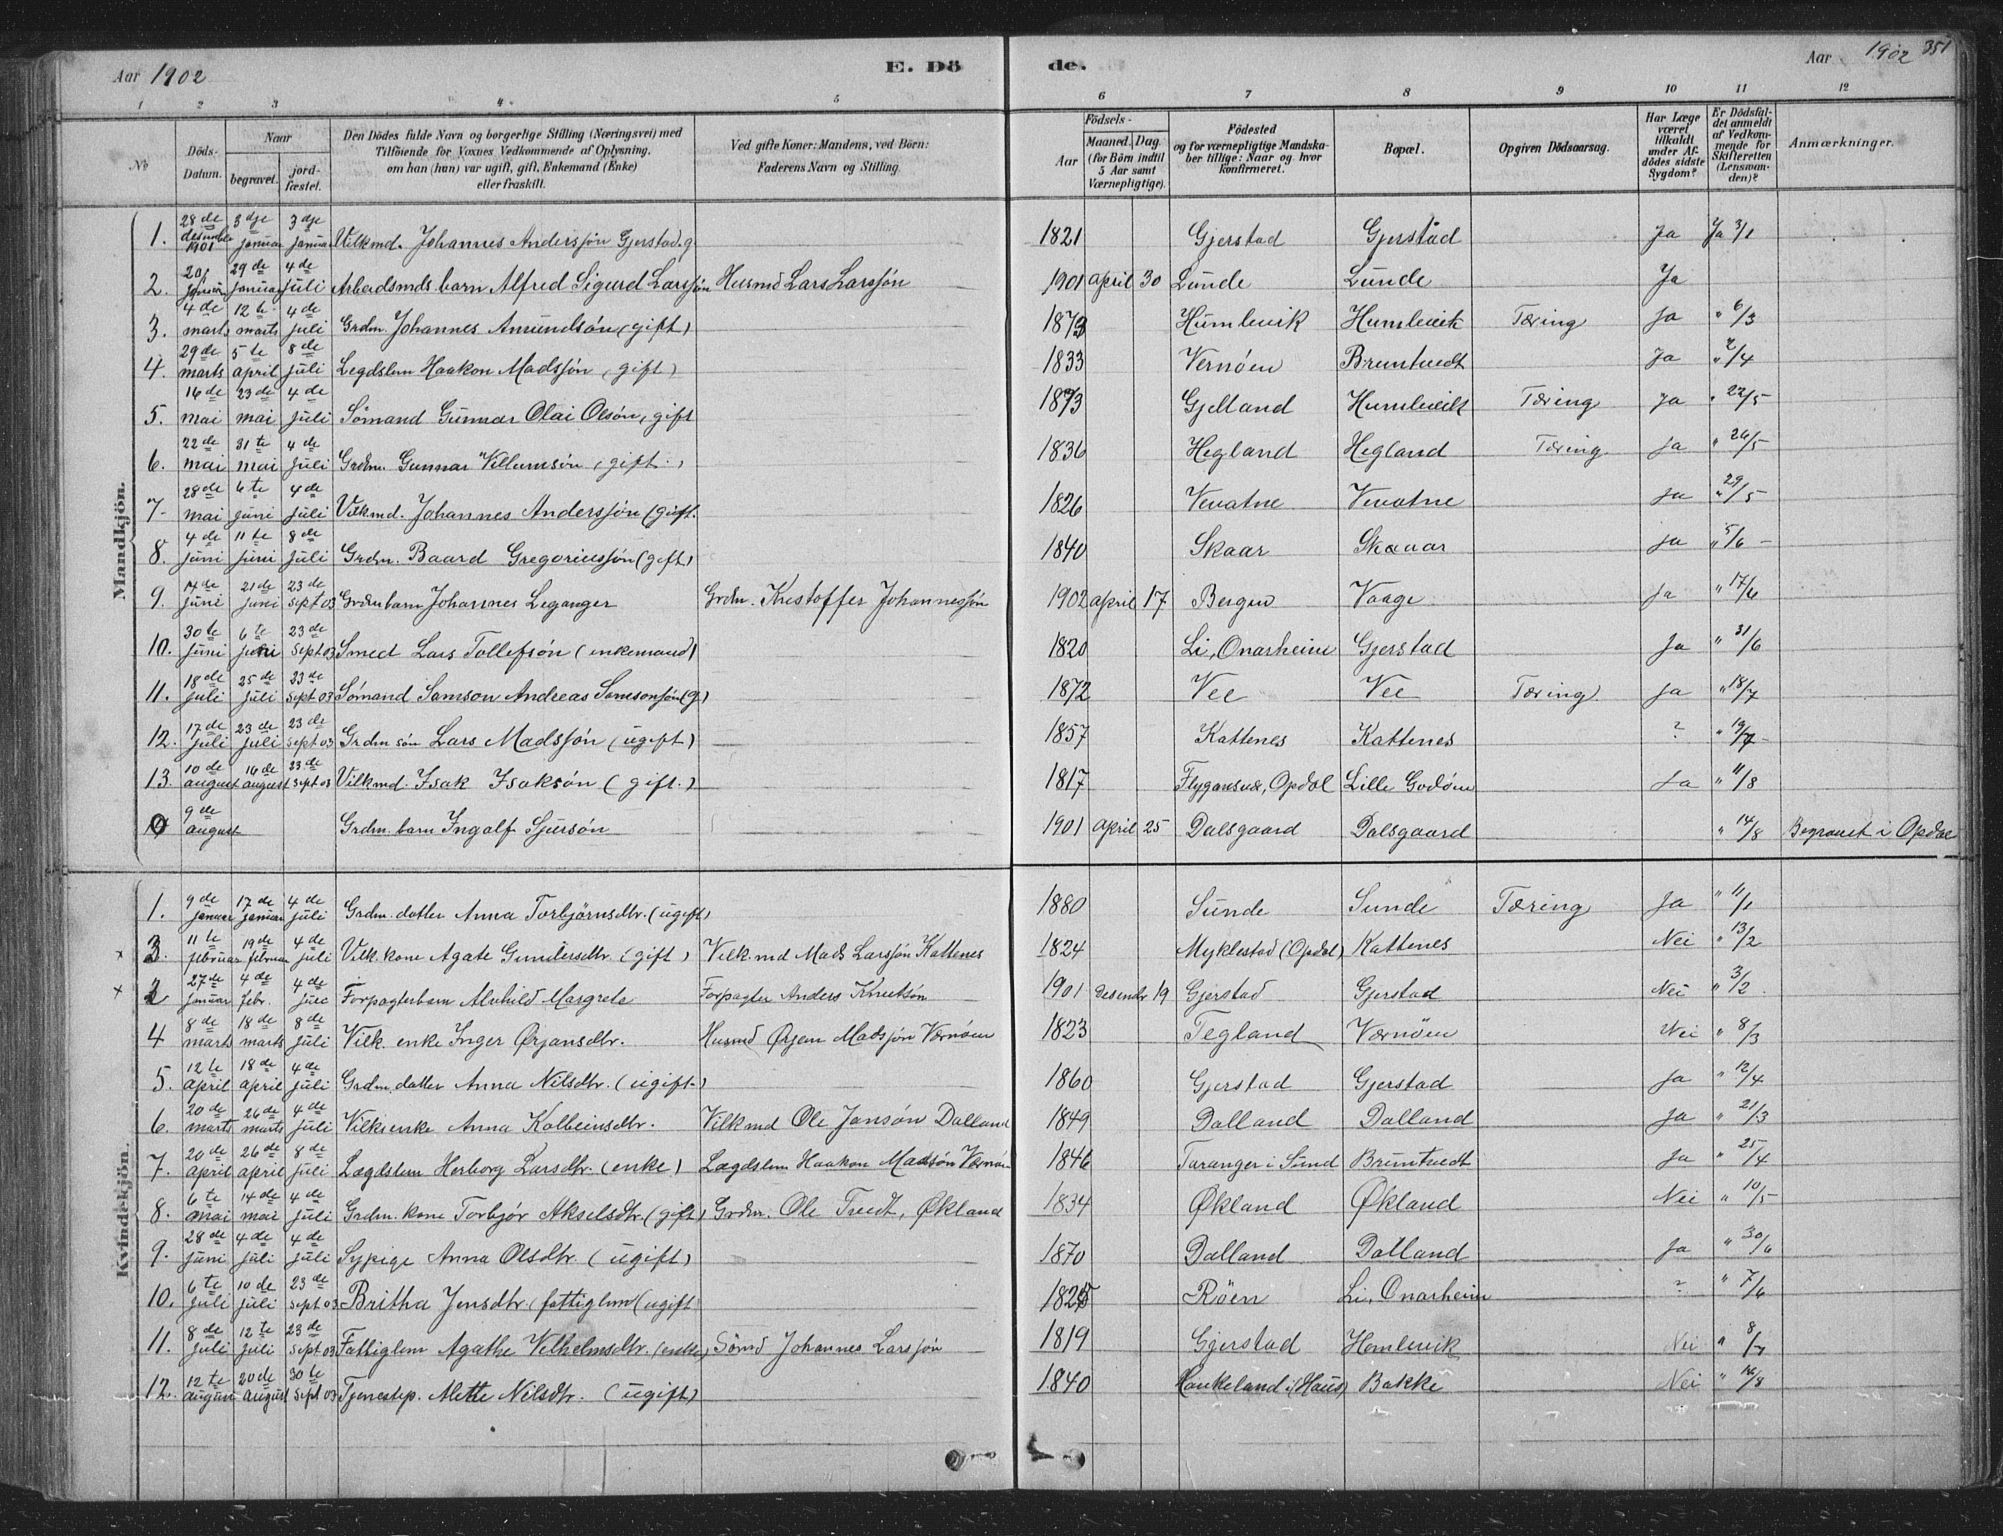 Aar 1902 E. Dö de. Aar 1902 351
1 2 3 4 5 6 7 8 9 10 11 12
No
Döds-Datum.
Naar
begravet. jordfæstet.
Den Dödes fulde Navn og borgerlige Stilling (Næringsvei) med Tilföiende for Voxnes Vedkommende af Oplysning, om han (hun) var ugift, gift, Enkemand (Enke) eller fraskilt.
Ved gifte Koner: Mandens, ved Börn: Faderens Navn og Stilling.
Födsels-
Aar Maaned. Dag.
(for Börn indtil 5 Aar samt Værnepligtige).
Födested og for værnepligtige Mandskaber tillige: Naar og hvor konfirmeret.
Bopæl.
Opgiven Dödsaarsag.
Har Læge været tilkaldt under Afdödes sidste Sygdom?
Er Dödsfaldet anmeldt af Vedkommende for Skifteretten (Lensmanden)?
Anmærkninger.
Mandkjön.
1. 28de desember 1901 3dje januar 3dje januar Vilkmd. Johannes Andersjön Gjerstad. g 1821 Gjerstad Gjerstad Ja Ja 3/1
2. 20/ januar 29de januar 4de juli Arbeidsmds. barn Alfred Sigurd Larsjön Husmd Lars Larsjön 1901 april 30 Lunde Lunde Ja
3. 4de marts 12te marts 4de juli Grdm. Johannes Amundsön (gift) 1873 Humlevik Humlevik Tæring Ja " 6/3
4. 29de marts 5te april 8de juli Legdslem Haakon Madsjön (gift) 1833 Vernöen Bruntvedt Ja " 2/4
5. 16de mai 23de mai 4de juli Sömand Gunnar Olai Olsön, gift 1873 Gjelland Humlevik Tæring Ja " 22/5
6. 22de mai 31te mai 4de juli Grdm. Gunnar Villumsön (gift.) 1836 Hegland Hegland Tæring Ja " 26/5
7. 28de mai 6te juni 4de juli Vilkmd. Johannes Andersjön (gift. 1826 Vevatne Vevatne Ja " 29/5
8. 4de juni 11te juni 8de juli Grdm. Baard Gregoriusjön (gift) 1840 Skaar Skaaar Ja " 5/6
9. 14de juni 21de juni 23de Sept 03 Grdm barn Johannes Leganger Grdm. Kristoffer Johannesjön 1902 april 17 Bergen Vaage Ja " 17/6
10. 30te juni 6te juni 23de Sept 03 Smed Lars Tollefsön (enkemand) 1820 Li, Onarheim Gjerstad Ja " 31/6
11. 18de juli 25de juli 23de Sept 03 Sömand Samson Andreas Samsonsjön (g) 1872 Vee Vee Tæring Ja " 18/7
12. 17de juli 23de juli 23de Sept 03 Grdm sön Lars Madsjön (ugift) 1857 Kattenes Kattenes ? " 19/7
13. 10de august 16de august 23de Sept 03 Vilkmd. Isak Isaksön (gift.) 1817 Flygansvær, Opdal Lille Godöen Ja " 11/8
0 9de august Grdm. barn Ingolf Sjursön 1901 april 25 Dalsgaard Dalsgaard " 14/8 Begravet i Opdal
Kvindekjön.
1. 9de januar 17de januar 4de juli Grdm. datter Anna Torbjörnsdtr. (ugift) 1880 Sunde Sunde Tæring Ja " 11/1
x 3. 11te februar 19de februar 4de juli Vilk. kone Agate Gundersdtr. (gift) Vilk.md Mads Larsjön Kattenes 1824 Myklestad (Opdal) Kattenes Nei " 13/2
x 2 27de januar 4de febr. 4de Forpagterbarn Alvhild Margreta Forpagter Anders Knutsön 1901 desembr 19 Gjerstad Gjerstad Nei " 3/2
4 8de marts 18de marts 8de juli Vilk. enke Inger Ørjansdtr. Husmd Ørjan Madsjön Værnöen 1823 Tegland Værnöen Nei " 8/3
5. 12te april 18de april 4de juli Grdm. datter Anna Nilsdtr. (ugift.) 1860 Gjerstad Gjerstad Ja " 12/4
6. 20de marts 26de marts 4de juli Vilks enke Anna Kolbeinsdtr. Vilkmd Ole Jansön Dalland 1849 Dalland Dalland Ja " 21/3
7. 20de april 26de april 8de juli Lægdslem Herborg Larsdtr. (enke) Lægdslem Haakon Madsön Værnöen 1846 Taranger i Sund Bruntvedt Ja " 25/4
8. 6te mai 14de mai 4de juli Grdm. kone Torbjör Akselsdtr. (gift) Grdm. Ole Tvedt, Økland 1834 Økland Økland Nei " 10/5
9. 28de juni 4de juli 4de juli Sypige Anna Olsdtr. (ugift) 1870 Dalland Dalland Ja " 30/6
10. 6te juli 10de juli 23de Sept 03 Britha Jensdtr (fattiglem (ugift) 1825 Röen Li, Onarheim ? " 7/6
11. 8de juli 12te juli 23de Sept 03 Fattiglem Agathe Vilhelmsdtr. (enke) Sömd Johannes Larsjön 1819 Gjerstad Homlevik Nei " 8/7
12. 12te august 20de august 30te Sept 03 Tjenestep. Mette Nilsdtr. (ugift) 1840 Haukeland i (Haus) Bakke Nei " 16/8